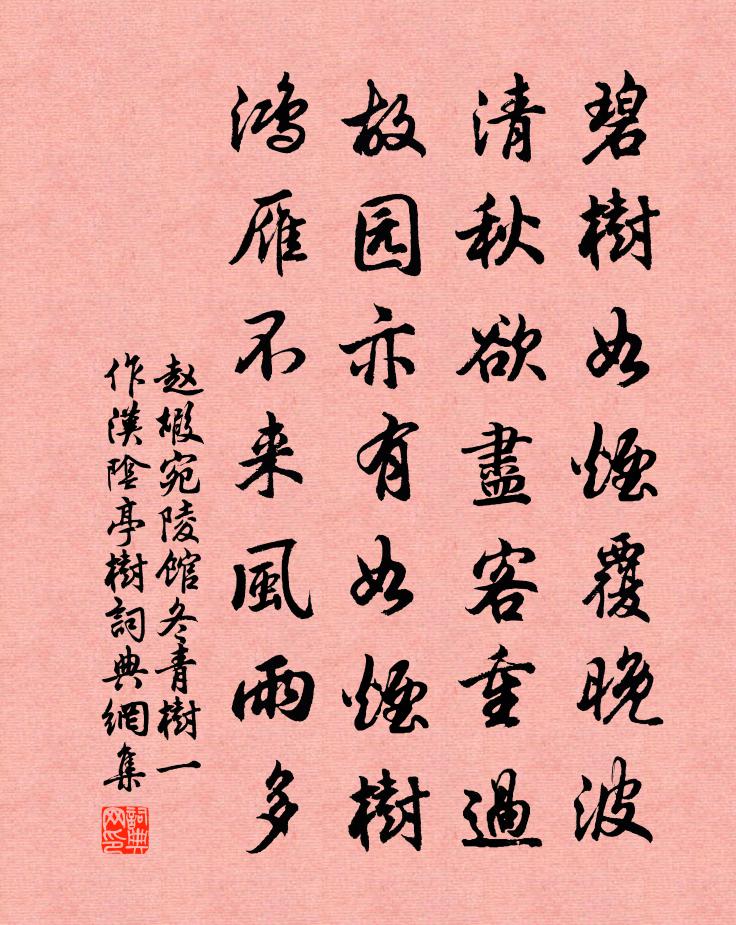 碧樹如煙覆晚波
清秋欲盡客重過
故园亦有如煙樹
鸿雁不来風雨多
赵嘏宛陵館冬青樹一
作漢陰亭樹詞典網集
詞典
网印